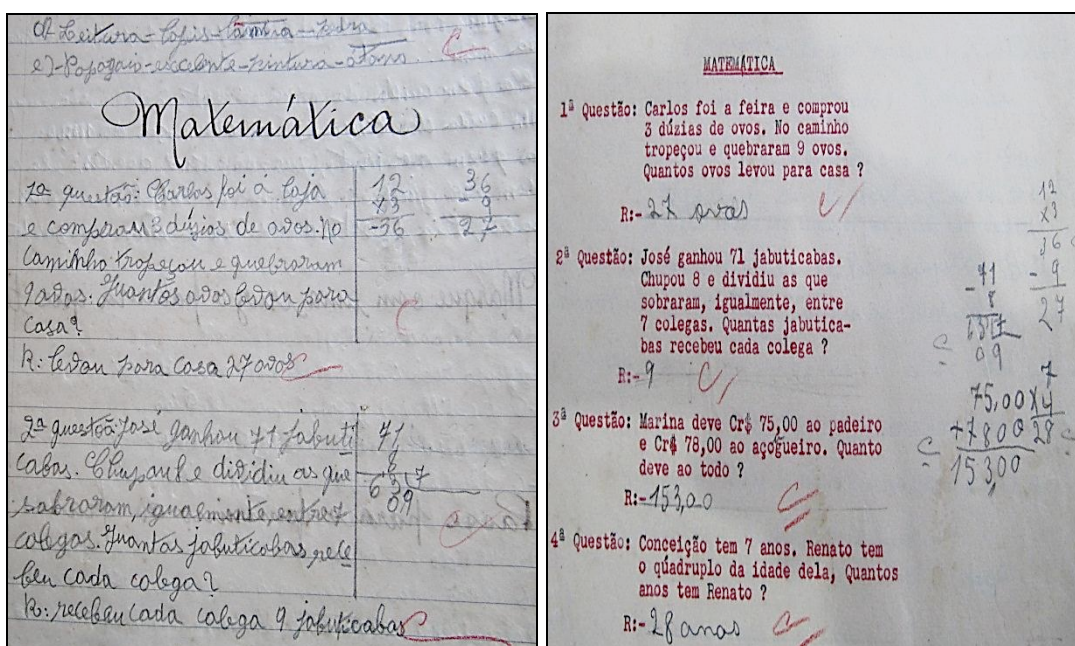 d) Leitura - lápis - lâmina - pedra
e) - Papagaio - excelente - pintura - ótimo.
Matemática
1ª questão: Carlos foi á loja
e comprau 3 dúzias de ovos. No
caminho tropeçou e quebraram
9 ovos. Quantos ovos levou para
casa?
R: levou para casa 27 ovos
12
x3
-36
36
- 9
27
2ª questão José ganhou 71 jabuti
cabas. Chupou 8 e dividiu as que
sobraram, igualmente, entre 7
colegas. Quantas jabuticabas rece
beu cada colega?
R: recebeu cada colega 9 jabuticabas
71
8
63 7
09
MATEMÁTICA
1ª Questão: Carlos foi a feira e comprou
3 dúzias de ovos. No caminho
tropeçou e quebraram 9 ovos.
Quantos ovos levou para casa ?
R:- 27 ovos
12
x3
36
- 9
27
2ª Questão: José ganhou 71 jabuticabas.
Chupou 8 e dividiu as que
sobraram, igualmente, entre
7 colegas. Quantas jabutica-
bas recebeu cada colega ?
R:- 9
-71
8
63 7
09
3ª Questão: Marina deve Cr$ 75,00 ao padeiro
e Cr$ 78,00 ao açogueiro. Quanto
deve ao todo ?
R:- 153,00
75,00
+7800
153,00
7
x4
28
4ª Questão: Conceição tem 7 anos. Renato tem
o quádruplo da idade dela, Quantos
anos tem Renato ?
R:- 28 anos